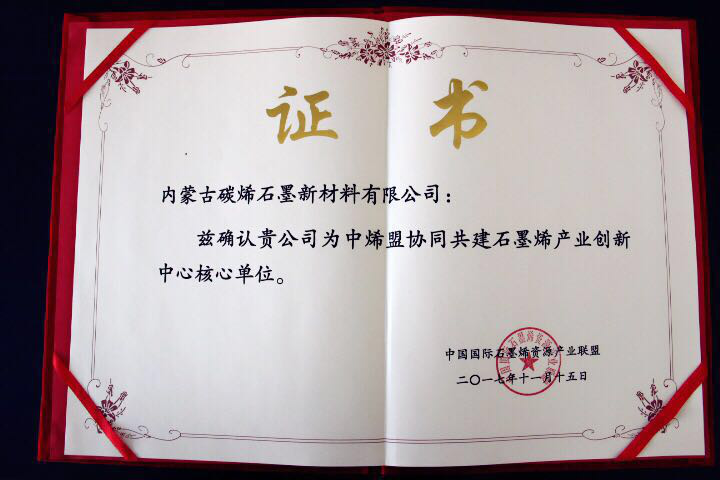 证书
内蒙古碳烯石墨新材料有限公司：
兹确认贵公司为中烯盟协同共建石墨烯产业创新
中心核心单位。
中国国际石墨烯资源产业联盟
二〇一七年十一月十五日